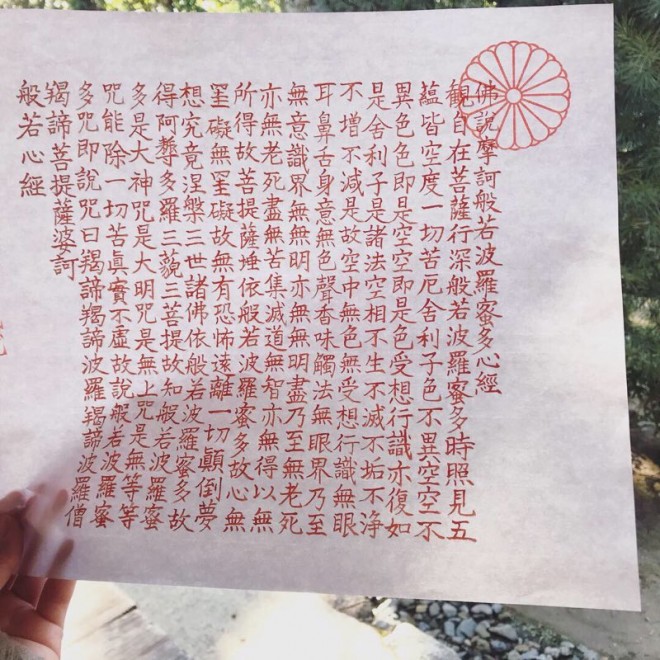 佛說摩訶般若波羅蜜多心經
観自在菩薩行深般若波羅蜜多時照見五
蘊皆空度一切苦厄舍利子色不異空空不
異色色即是空空即是色受想行識亦復如
是舍利子是諸法空相不生不滅不垢不浄
不增不減是故空中無色無受想行識無眼
耳鼻舌身意無色聲香味觸法無眼界乃至
無意識界無無明亦無無明盡乃至無老死
亦無老死盡無苦集滅道無智亦無得以無
所得故菩提薩埵依般若波羅蜜多故心無
罣礙無罣礙故無有恐怖遠離一切顛倒夢
想究竟涅槃三世諸佛依般若波羅蜜多故
得阿耨多羅三藐三菩提故知般若波羅蜜
多是大神咒是大明咒是無上咒是無等等
咒能除一切苦眞實不虛故說般若波羅蜜
多咒即說咒曰羯諦羯諦波羅羯諦波羅僧
羯諦菩提薩婆訶
般若心經